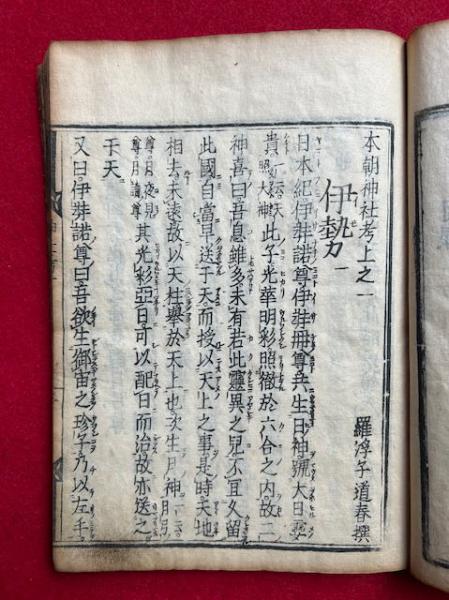 本朝神社考上之一
羅浮子道春撰
伊勢 一
日本紀伊弉諾尊伊弉冊尊共生日神號大日孁
貴一云天照大神此子光華明彩照徹於六合之内故二
神喜曰吾息雖多未有若此靈異之兒不宜久留
此國自當早送于天而授以天上之事是時天地
相去未遠故以天柱擧於天上也次生月神一云月弓
尊月夜見尊月讀尊其光彩亞日可以配日而治故亦送之
于天
又曰伊弉諾尊曰吾欲生御宙之珍子乃以左手